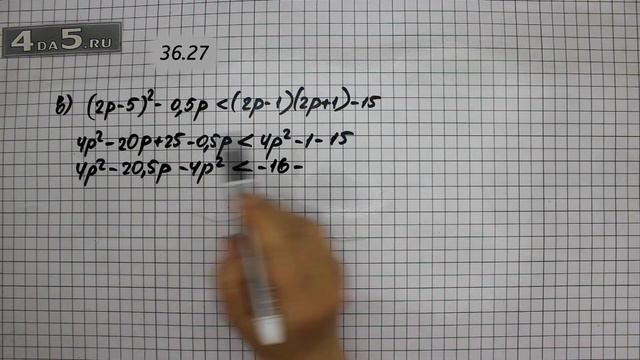 4DA5.RU
36.27
в) (2p-5)² - 0,5p < (2p-1)(2p+1)-15
4p² - 20p + 25 - 0,5p < 4p² - 1 - 15
4p² - 20,5p - 4p² < -16 -